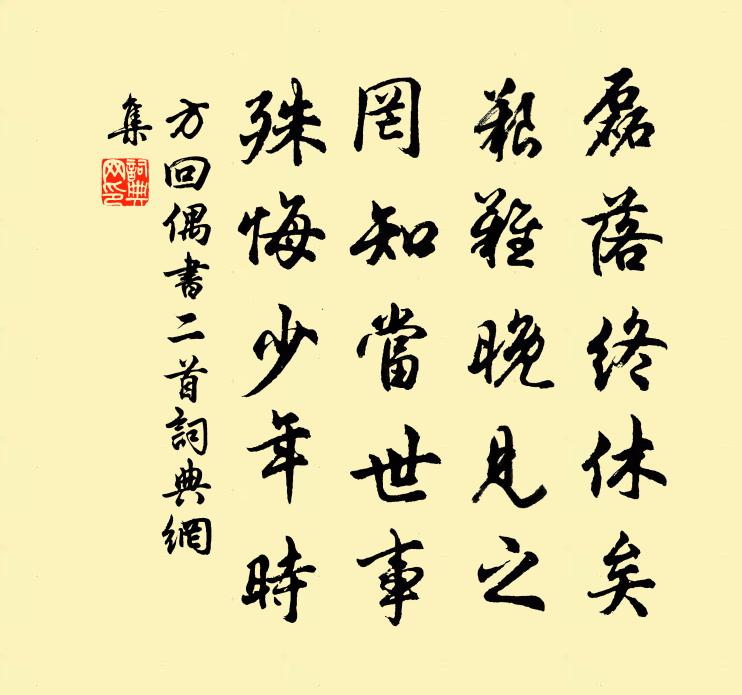 磊落終休矣
艱難晚見之
罔知當世事
殊悔少年時
方回偶書二首詞典網
集
詞典網印